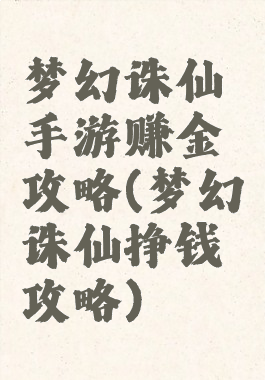 梦幻诛仙
手游赚金
攻略(梦幻
诛仙挣钱
攻略)